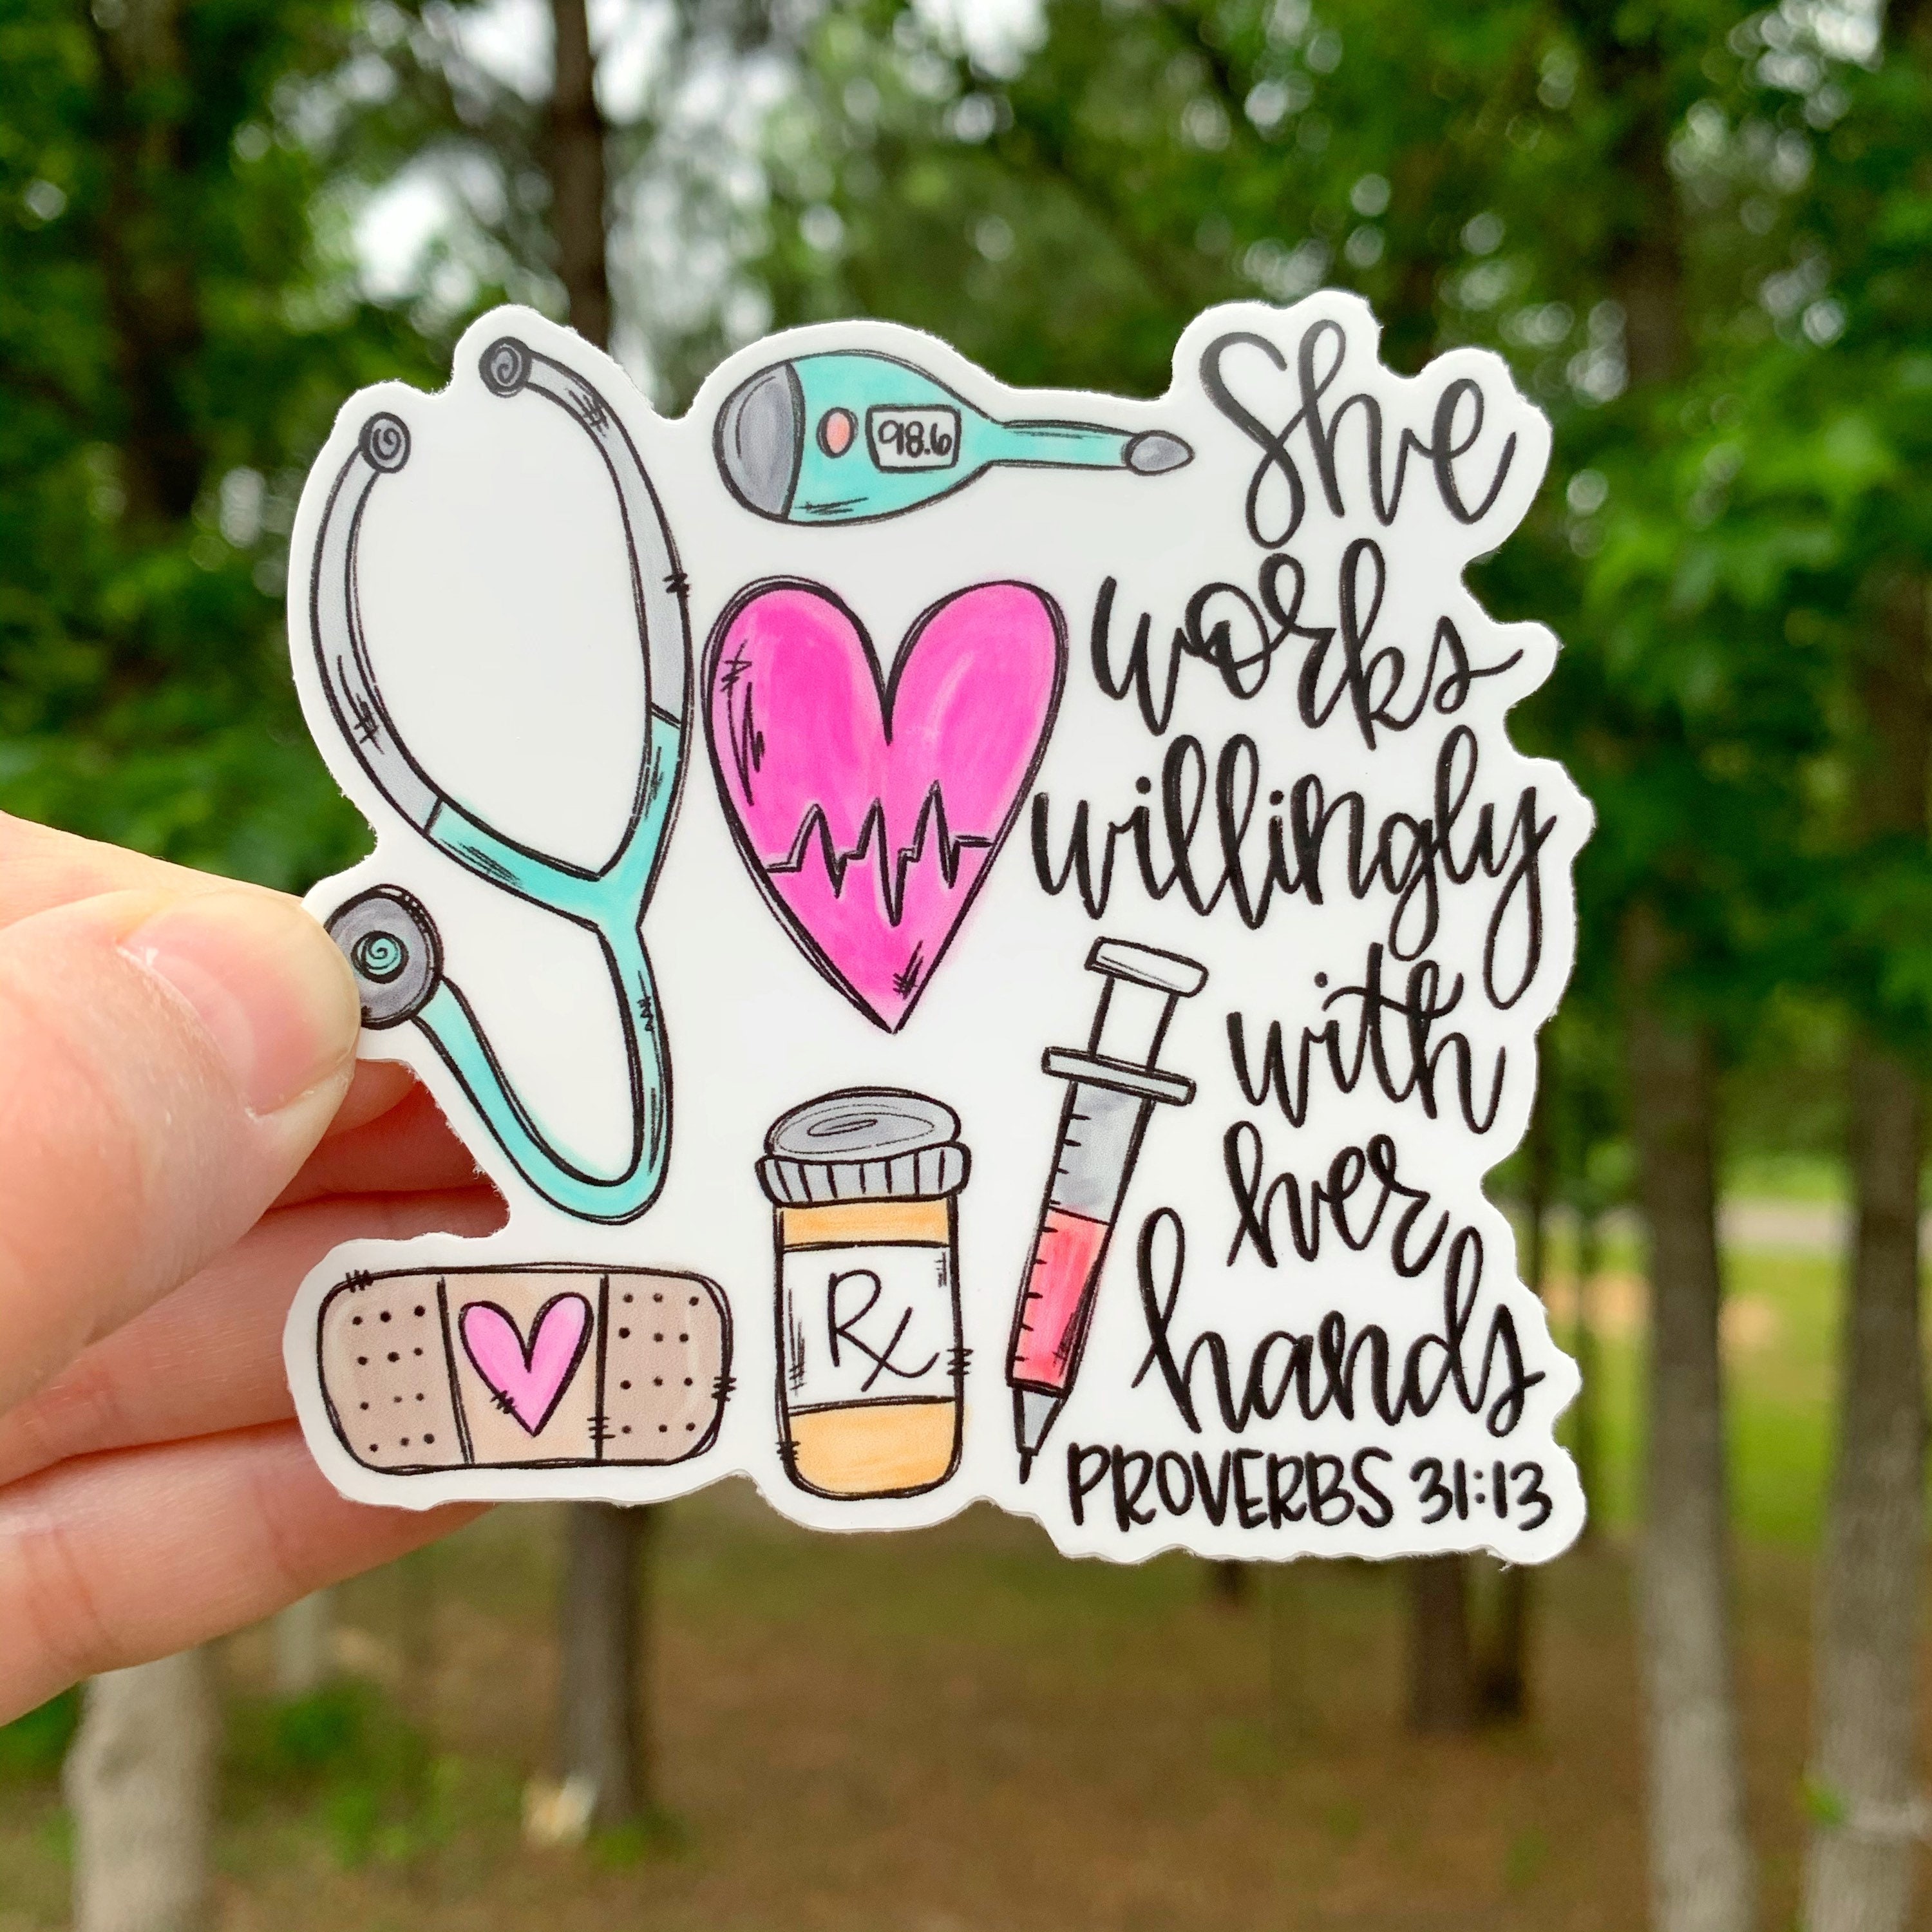 98.6
She
works
willingly
with
her
hands
Rx
PROVERBS 31:13